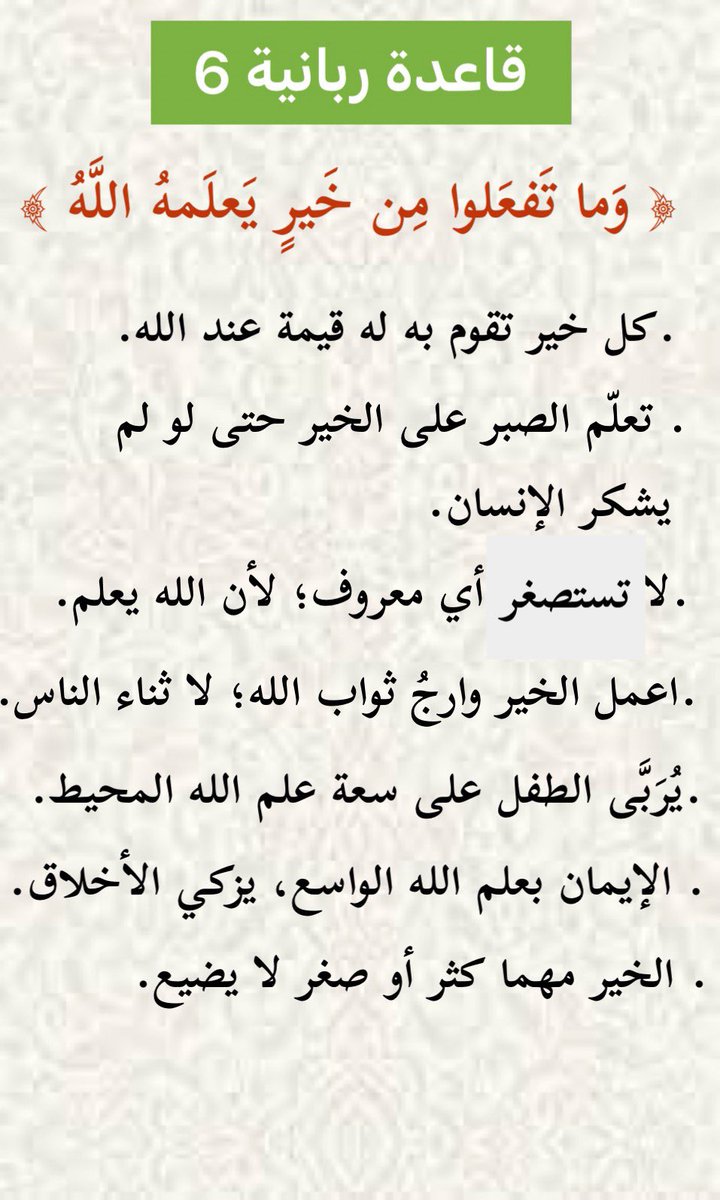 قاعدة ربانية 6
﴿ وَما تَفعَلوا مِن خَيرٍ يَعلَمهُ اللَّهُ ﴾
.كل خير تقوم به له قيمة عند الله.
. تعلّم الصبر على الخير حتى لو لم
يشكر الإنسان.
.لا تستصغر أي معروف؛ لأن الله يعلم.
.اعمل الخير وارجُ ثواب الله؛ لا ثناء الناس.
.يُرَبَّى الطفل على سعة علم الله المحيط.
. الإيمان بعلم الله الواسع، يزكي الأخلاق.
. الخير مهما كثر أو صغر لا يضيع.